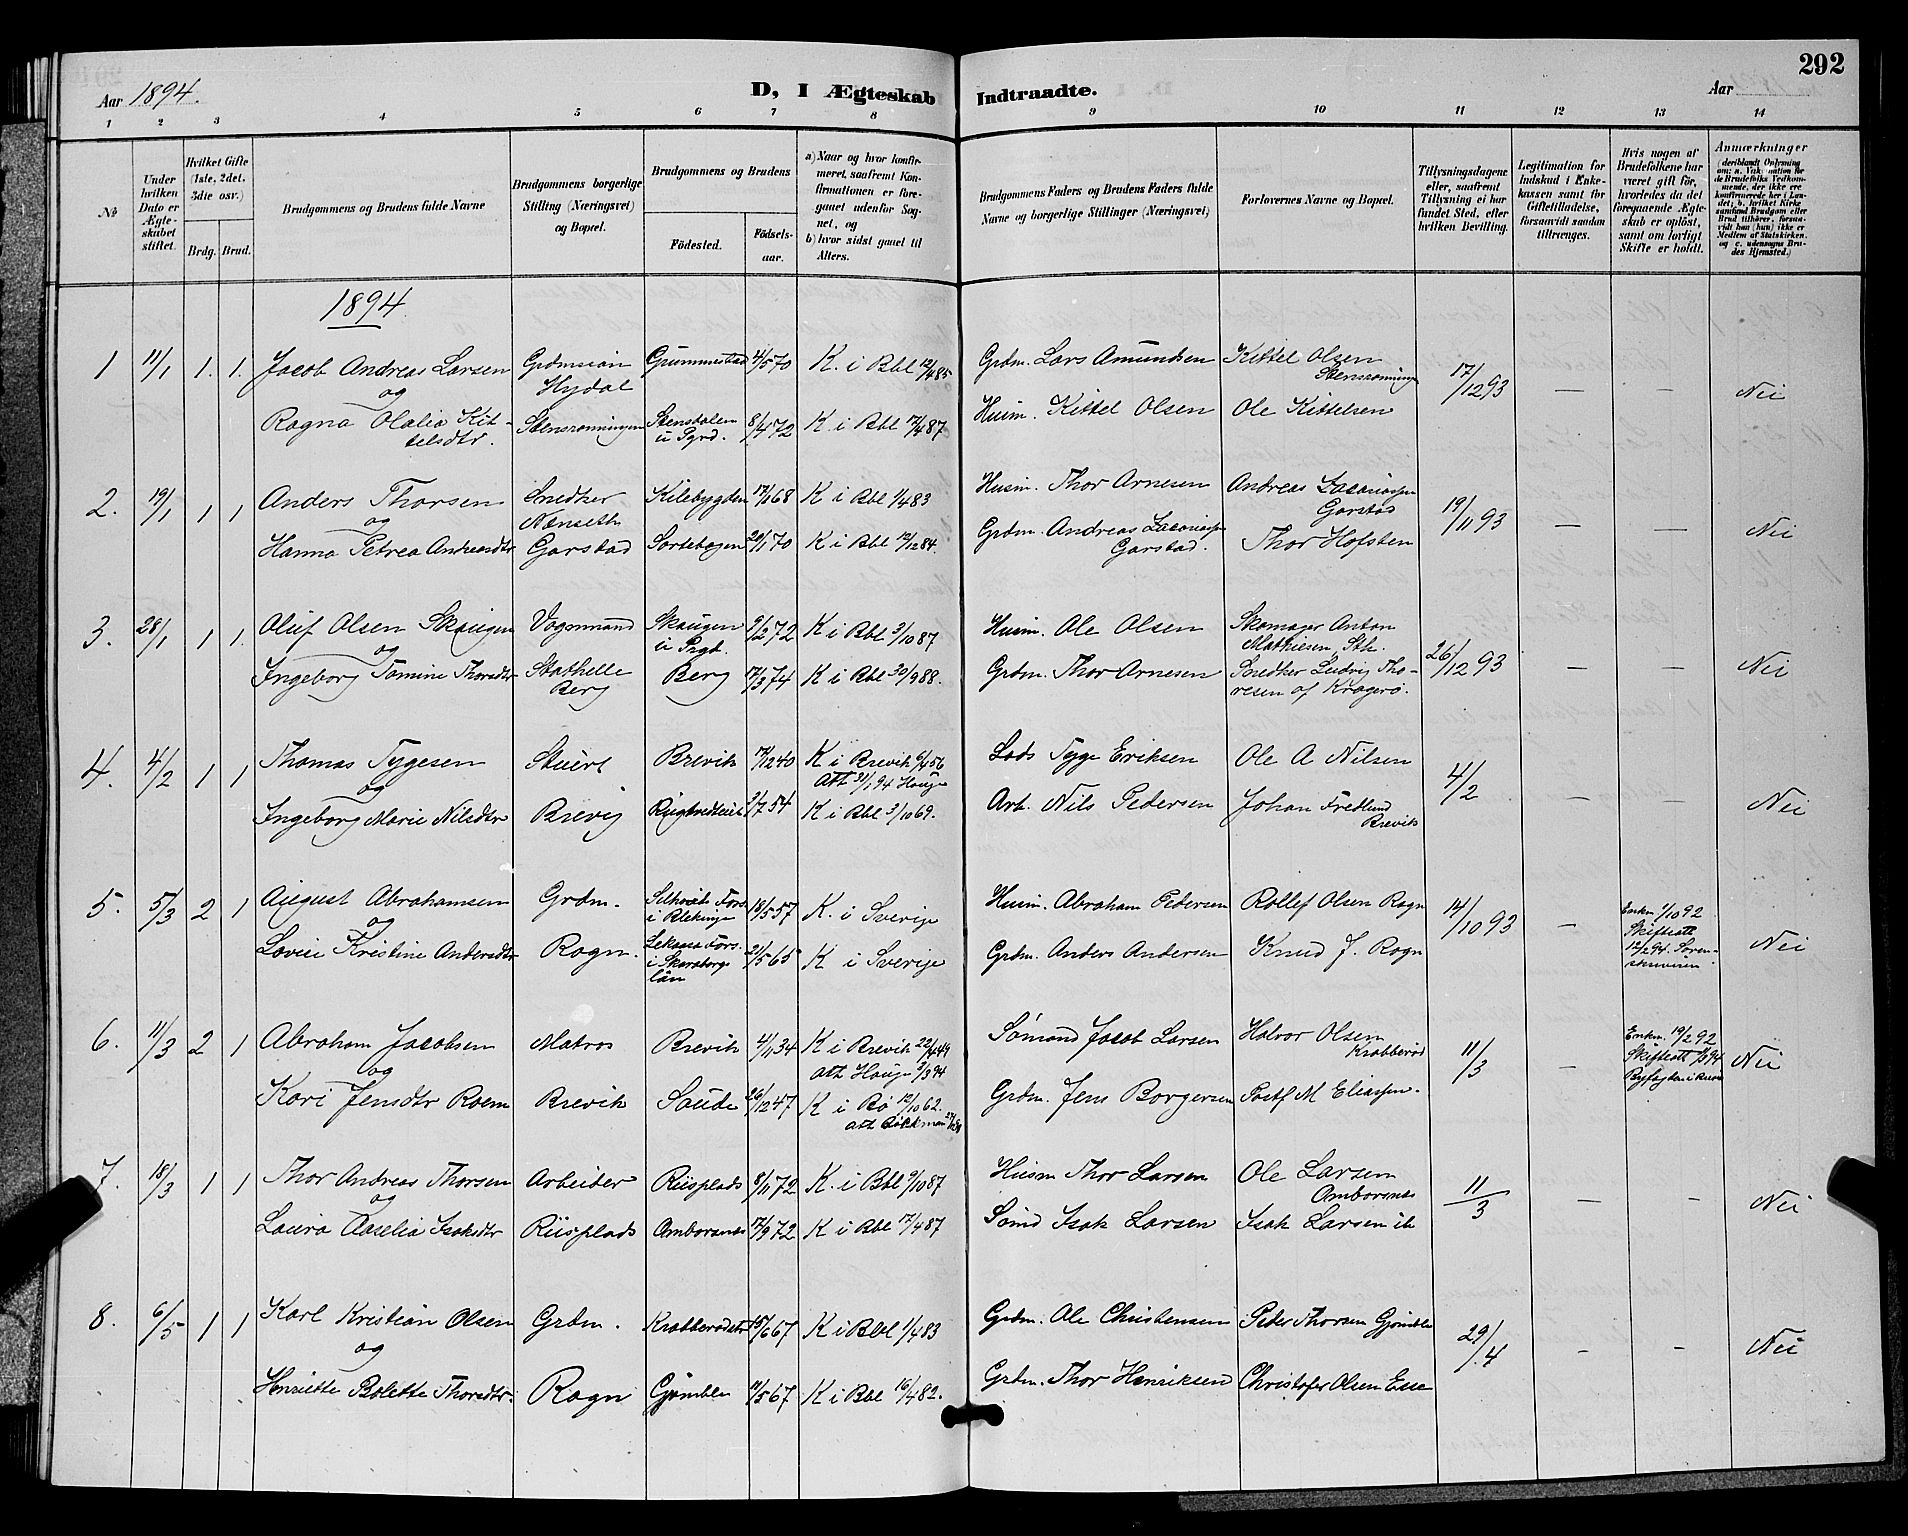 292
Aar 1894.
D, I Ægteskab Indtraadte.
Aar
1 2 3 4 5 6 7 8 9 10 11 12 13 14
No
Under hvilken Dato er Ægteskabet stiftet.
Hvilket Gifte (1ste, 2det, 3die osv.)
Brdg. Brud.
Brudgommens og Brudens fulde Navne
Brudgommens borgerlige Stilling (Næringsvei) og Bopæl.
Brudgommens og Brudens
Fødested.
Fødselsaar.
a) Naar og hvor konfirmeret, saafremt Konfirmationen er foregaaet udenfor Sognet, og
b) hvor sidst gaaet til Alters.
Brudgommens Faders og Brudens Faders fulde Navne og borgerlige Stillinger (Næringsvei)
Forlovernes Navne og Bopæl.
Tillysningsdagene eller, saafremt Tillysning ei har fundet Sted, efter hvilken Bevilling.
Legitimation for Indskud i Enkekassen samt for Giftetilladelse, forsaavidt saadan tiltrænges.
Hvis nogen af Brudefolkene har været gift før, hvorledes da det foregaaende Ægteskab er opløst, samt om lovligt Skifte er holdt.
Anmærkninger
1894
1 11/1 1. 1. Jacob Andreas Larsen Grdmsøn Grummestad 4/5 70 K. i Bbl 12/4 85 Grdm. Lars Amundsen Kittel Olsen
og Hydal Stensrønningen 17/12 93 — — Nei
Ragna Olalia Kittelsdtr. Stensrønningen Stensdalen i Pgrd. 8/4 72 K. i Bbl 17/4 87 Husm. Kittel Olsen Ole Kittelsen
2. 19/1 1 1 Anders Thorsen Snedker Kilebygden 17/1 68 K i Bbl 1/4 83 Husm. Thor Arnesen Andreas Zacariasen
og Nenseth Garstad 19/11 93 — — Nei
Hanna Petrea Andreasdtr Garstad Sortebogen 20/1 70 K i Bbl 12/12 84. Grdm. Andreas Zacariassen Garstad. Thor Hofsten
3. 28/1 1 1. Oluf Olsen Skaugen Vognmand Skaugen i Prgd. 9/2 72 K i Bbl 3/10 87 Husm. Ole Olsen Skomager Anton Mathiesen Sth.
og Stathelle 26/12 93 — — Nei
Ingeborg Tomine Thorsdtr Berg Berg 17/3 74 K i Bbl 30/9 88. Grdm. Thor Arnesen Snedker Ludvig Thoresen af Kragerö.
4. 4/2 1 1 Thomas Tygesen Stuert Brevik 17/12 40 K i Brevik 6/4 56 Lods Tyge Eriksen Ole A Nilsen
og att 31/1 94 Hauge 4/2 — — Nei
Ingeborg Marie Nilsdtr Brevig 2/7 54 K i Bbl 3/10 69. Arb. Nils Pedersen Johan Fredlund Brevik
5. 5/3 2 1 August Abrahamsen Grdm. i Blekinge 18/5 57 K. i Sverige Husm. Abraham Pedersen Rollef Olsen Ragn
og 14/10 93 — Enkm 1/10 92 Skifteatt 12/2 94. Sorenskriveren. Nei
Lovise Kristine Andersdtr Ragn. Lekasa Fors. i Skaraborgs län 21/5 65 K i Sverige Grdm. Anders Andersen Knud J. Ragn
6. 11/3 2 1 Abraham Jacobsen Matros Brevik 4/1 34 K i Brevik 22/4 49 Sömand Jacob Larsen Halvor Olsen Krabberød
og att Hauge 94 11/3 — Enkm. 19/2 92 Skifteatt 94 Byfogden i Brevik Nei
Kari Jensdtr Roem Brevik Saude 26/12 47 K i Bø 12/10 62. Grdm. Jens Borgersen Postf M Eliassen.
7. 18/3 1 1 Thor Andreas Thorsen Arbeider Riisplads 8/11 72 K. i Bbl 9/10 87 Husm Thor Larsen Ole Larsen
og Amborsnes 11/3 — — Nei
Laura Aselia Isaksdtr Riisplads Amborsnes 17/9 72 K i Bbl 17/4 87 Sömd Isak Larsen Isak Larsen ib
8. 6/5 1 1 Karl Kristian Olsen Grdm. 15/6 67 K i Bbl 1/4 83 Grdm. Ole Christensen Peder Thorsen Gjömble
og 29/4 — — Nei
Henriette Bolette Thorsdtr. Ragn Gjömble 11/5 67 K i Bbl 16/4 82. Grdm. Thor Henriksen Christofer Olsen